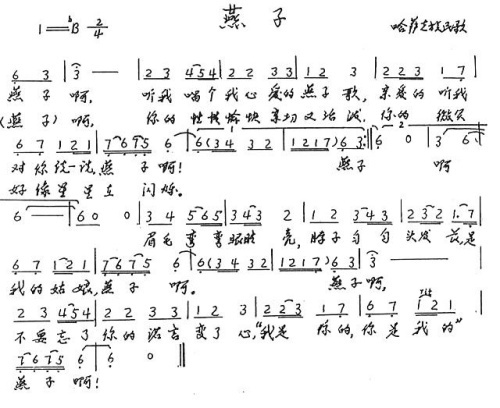 燕子
1=♭B 2/4 哈萨克族民歌
6 3 | 3 — — | 2 3 4 5 4 | 2 2 3 3 | 1 2 3 | 2 2 3 1 7 |
燕子啊, 听我唱个我心爱的燕子歌, 亲爱的听我
(燕子)啊, 你的性情愉快亲切又活泼, 你的微笑
6 7 1 2 1 | 7 6 7 5 6 | 6 (3 4 3 2 | 1 2 1 7) 6 3 :‖ 6 0 | 3 6 |
对你说一说,燕子啊! 燕子啊
好像星星在闪烁.
6 — | 6 0 0 | 3 4 5 6 5 | 3 4 3 2 | 1 2 3 4 3 | 2 3 2 1. 7 |
眉毛弯弯眼睛亮, 脖子匀匀头发长,是
6 7 1 2 1 | 7 6 7 5 6 | 6 (3 4 3 2 | 1 2 1 7) 6 3 | 3 — — |
我的姑娘,燕子啊. 燕子啊,
2 3 4 5 4 | 2 2 3 3 | 1 2 3 | 2 2 3 1 7 | 6 7 1 2 1 |
不要忘了你的诺言变了心,"我是你的,你是我的"
7 6 7 5 6 | 6 0 ‖
燕子啊!